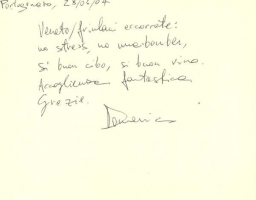 Portogruaro, 28/06/07
Veneto/friulani accorrete:
no stress, no unabomber,
si buon cibo, si buon vino.
Accoglienza fantastica
Grazie.
Domenico